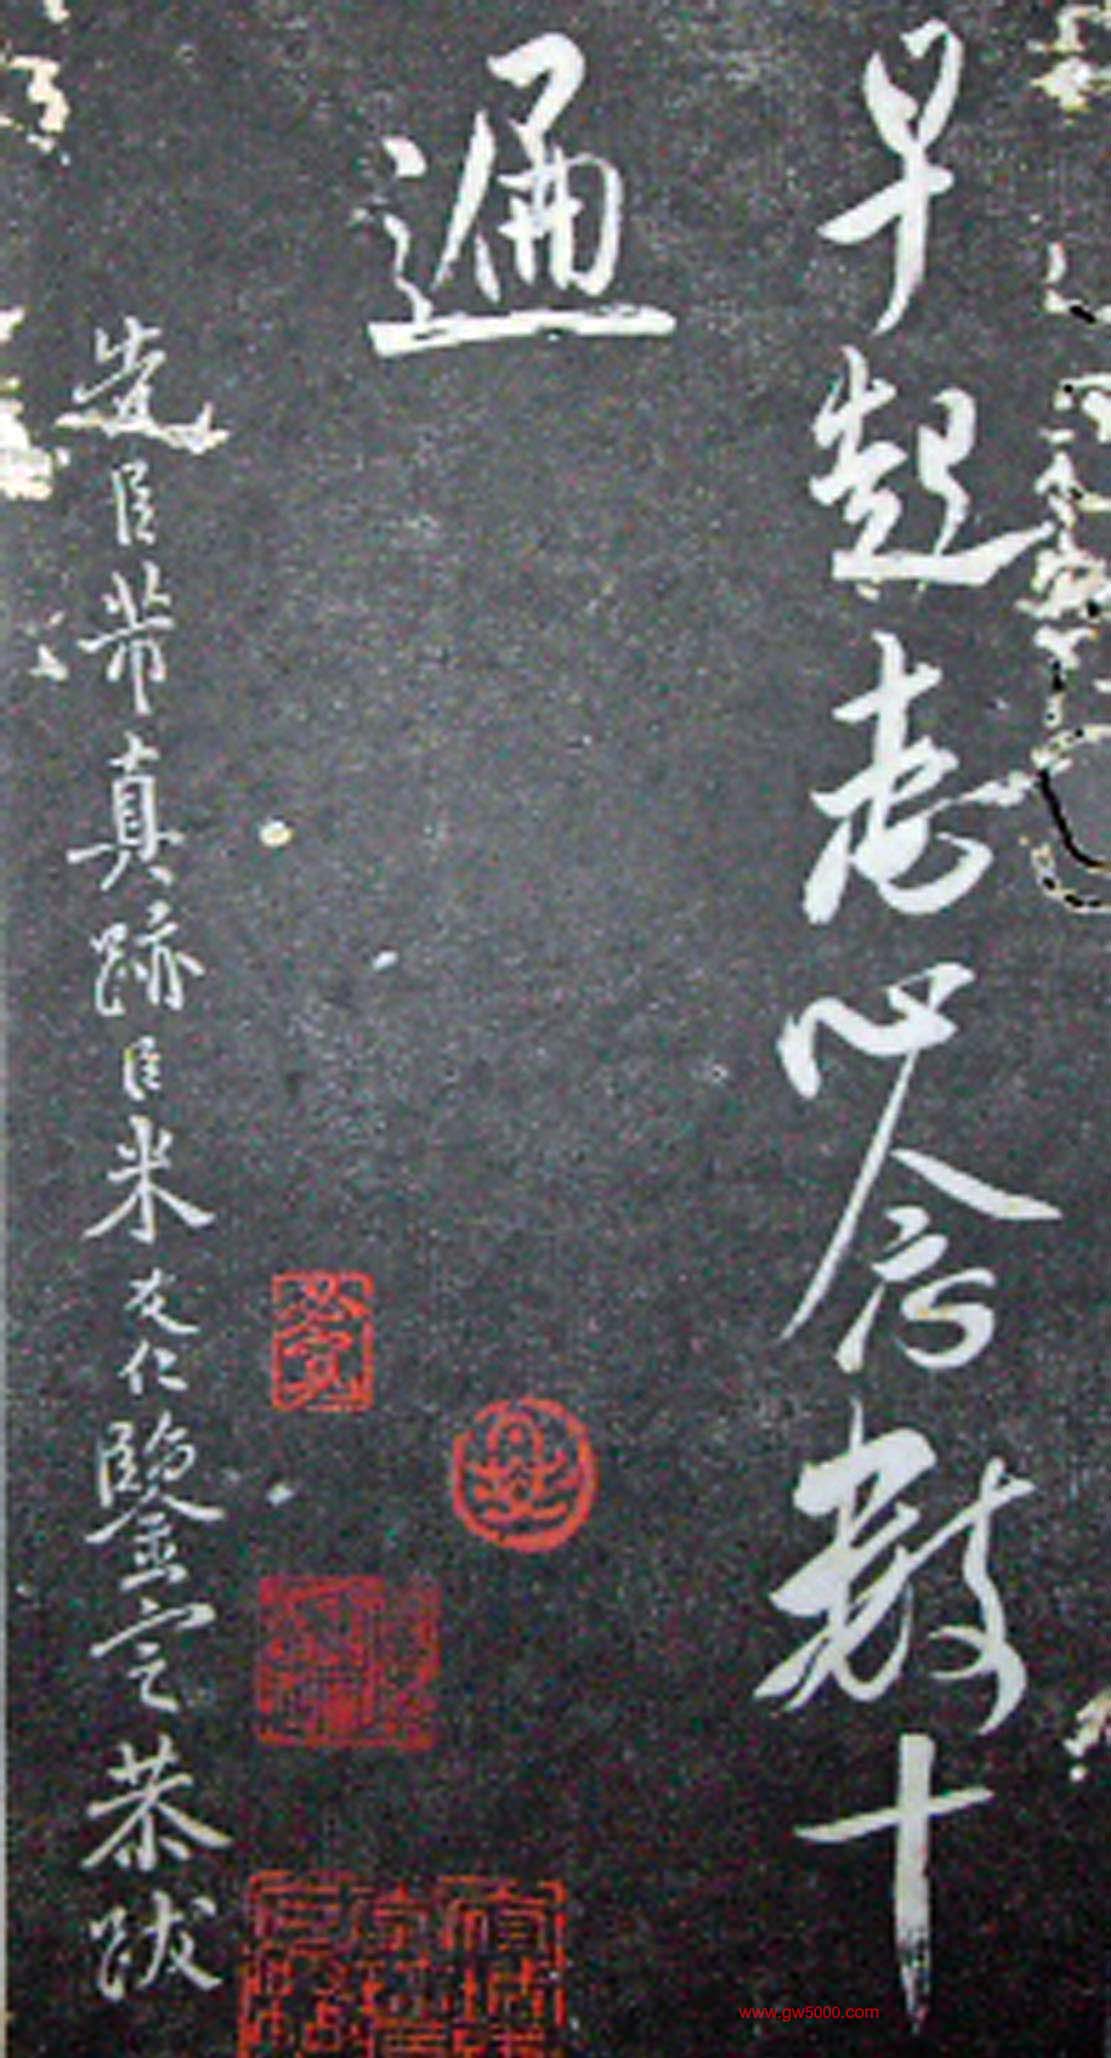 早起
心念數十
遍
先臣芾真跡臣米友仁鑒定恭跋
www.gw5000.com